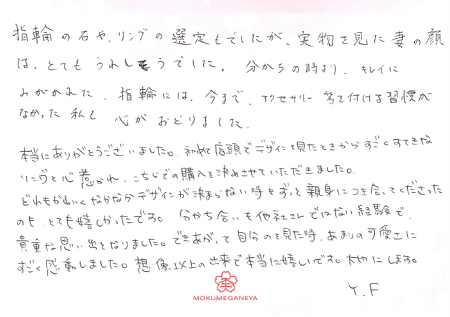 指輪の石や、リングの選定もでしたが、実物を見た妻の顔
は、とてもうれしそうでした。分からの時より、キレイに
みがかれた、指輪には、今まで、アクセサリー 等を付ける習慣が
なかった私も 心がおどりました。
本当にありがとうございました。初めて店頭でデザインを見たときからすごくすてきな
リングと心惹かれ、こちらでの購入を決めさせていただきました。
どれもかわいくなかなかデザインが決まらない時もずっと親身につき合ってくださった
のも、とても嬉しかったです。分かち合いも他社さんではない経験で、
貴重な思い出となりました。できあがって自分のを見た時、あまりの可愛さに
すごく感動しました。想像以上の出来で本当に嬉しいです。大切にします。
Y.F
MOKUMEGANEYA